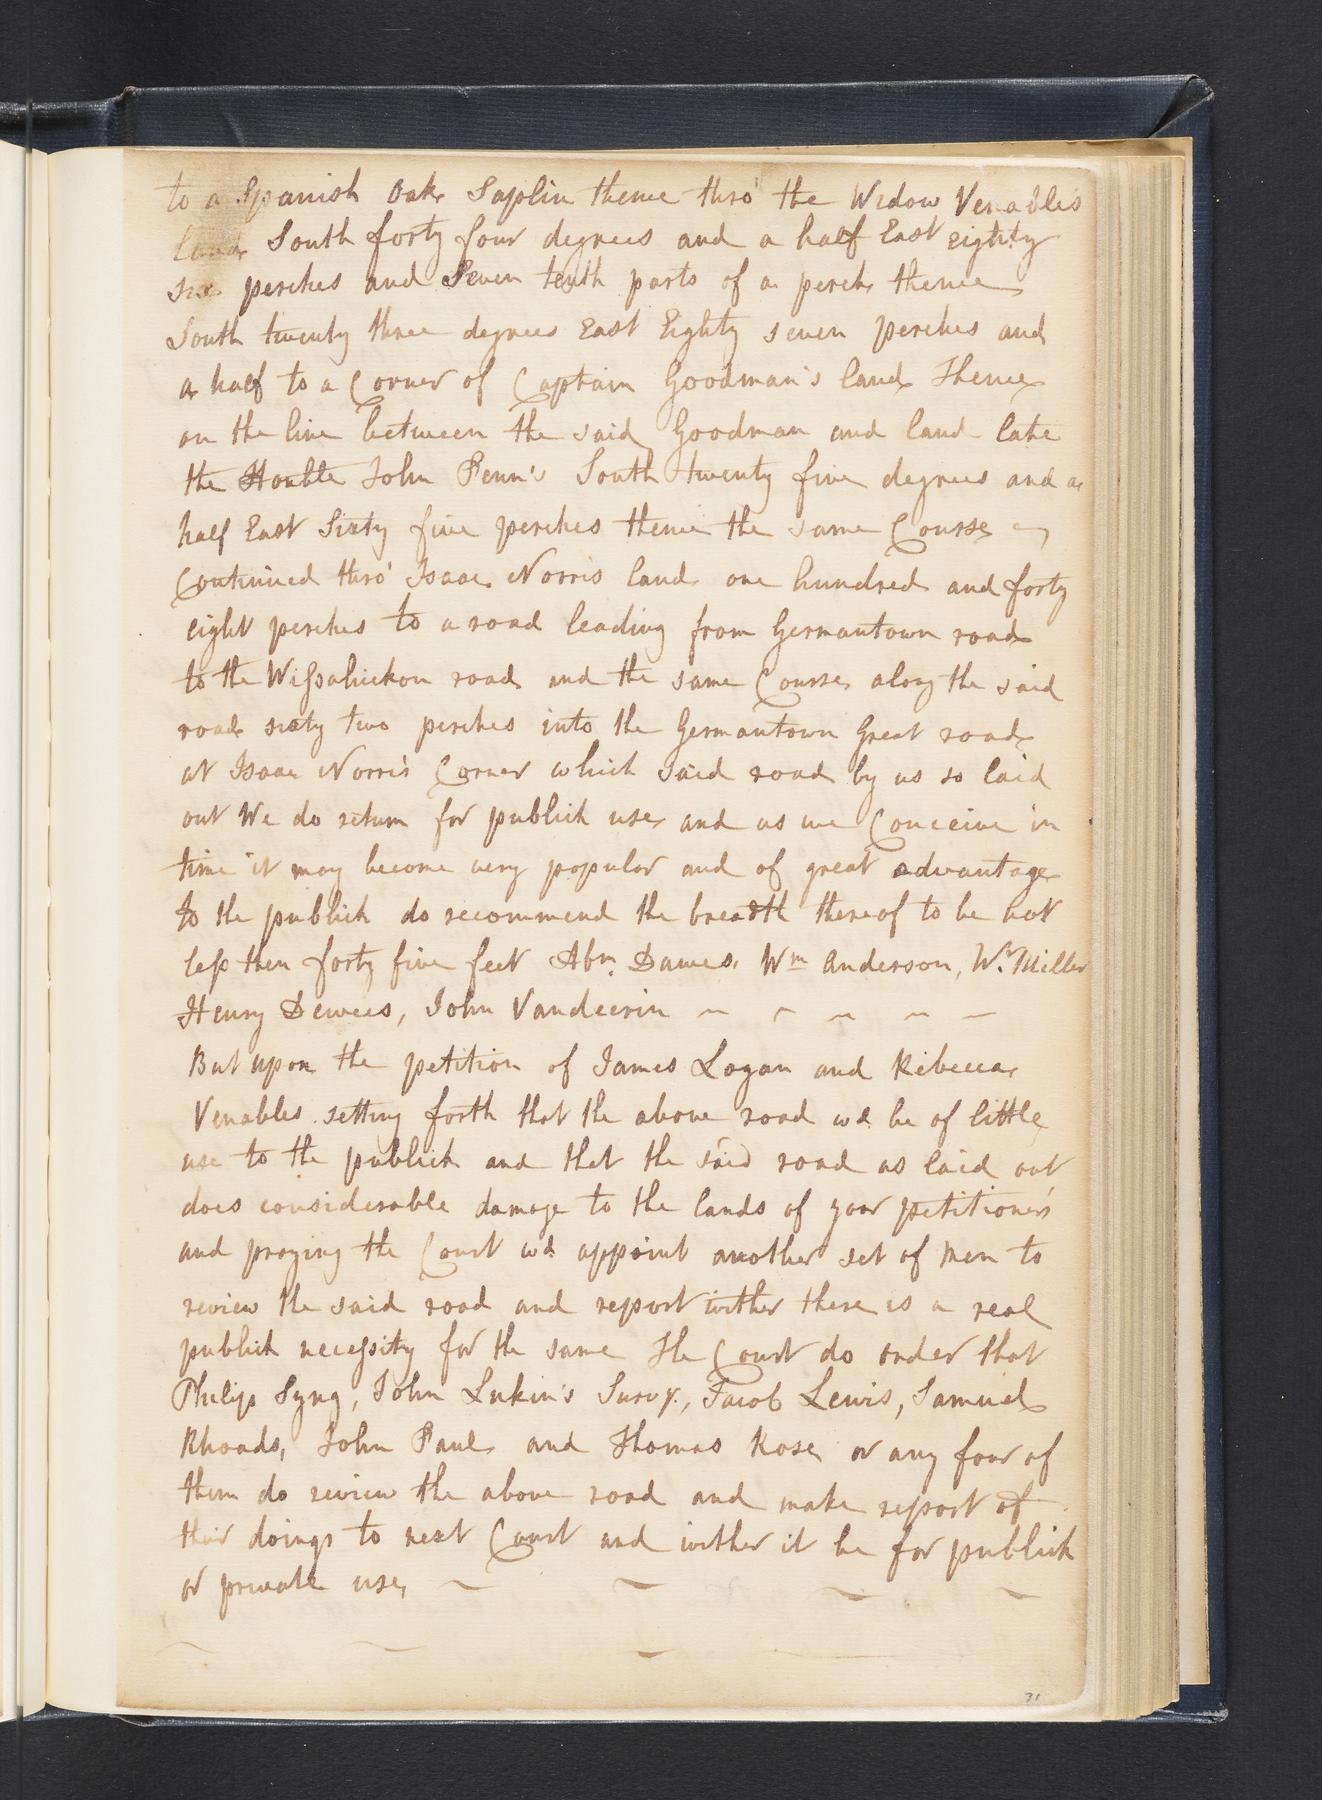 to a Spanish Oak Saplin thence thro' the Widow Venables
land South forty four degrees and a half East eighty
six perches and Seven tenth parts of a perch thence
South twenty three degrees East Eighty seven perches and
a half to a Corner of Captain Goodman's land Thence
on the line between the said Goodman and land late
the Honble John Penn's South twenty five degrees and a
half East Sixty five perches thence the same Course
Continued thro' Isaac Norris land one hundred and forty
eight perches to a road leading from Germantown road
to the Wissahickon road and the same Course along the said
road sixty two perches into the Germantown Great road
at Isaac Norris Corner which said road by us so laid
out We do return for publick use and as we Conceive in
time it may become very popular and of great advantage
to the publick do recommend the breadth thereof to be not
less then forty five feet Abm. Dawes, Wm Anderson, Wm Miller
Henry Dewees, John Vandeerin
But upon the petition of James Logan and Rebecca
Venables setting forth that the above road wd be of little
use to the publick and that the said road as laid out
does considerable damage to the lands of your petitioners
and praying the Court wd appoint another set of men to
review the said road and report wither there is a real
publick necessity for the same The Court do order that
Philip Syng, John Lukin's Survy., Jacob Lewis, Samuel
Rhoads, John Paul and Thomas Rose or any four of
them do review the above road and make report of
their doings to next Court and wither it be for publick
or private use,
31